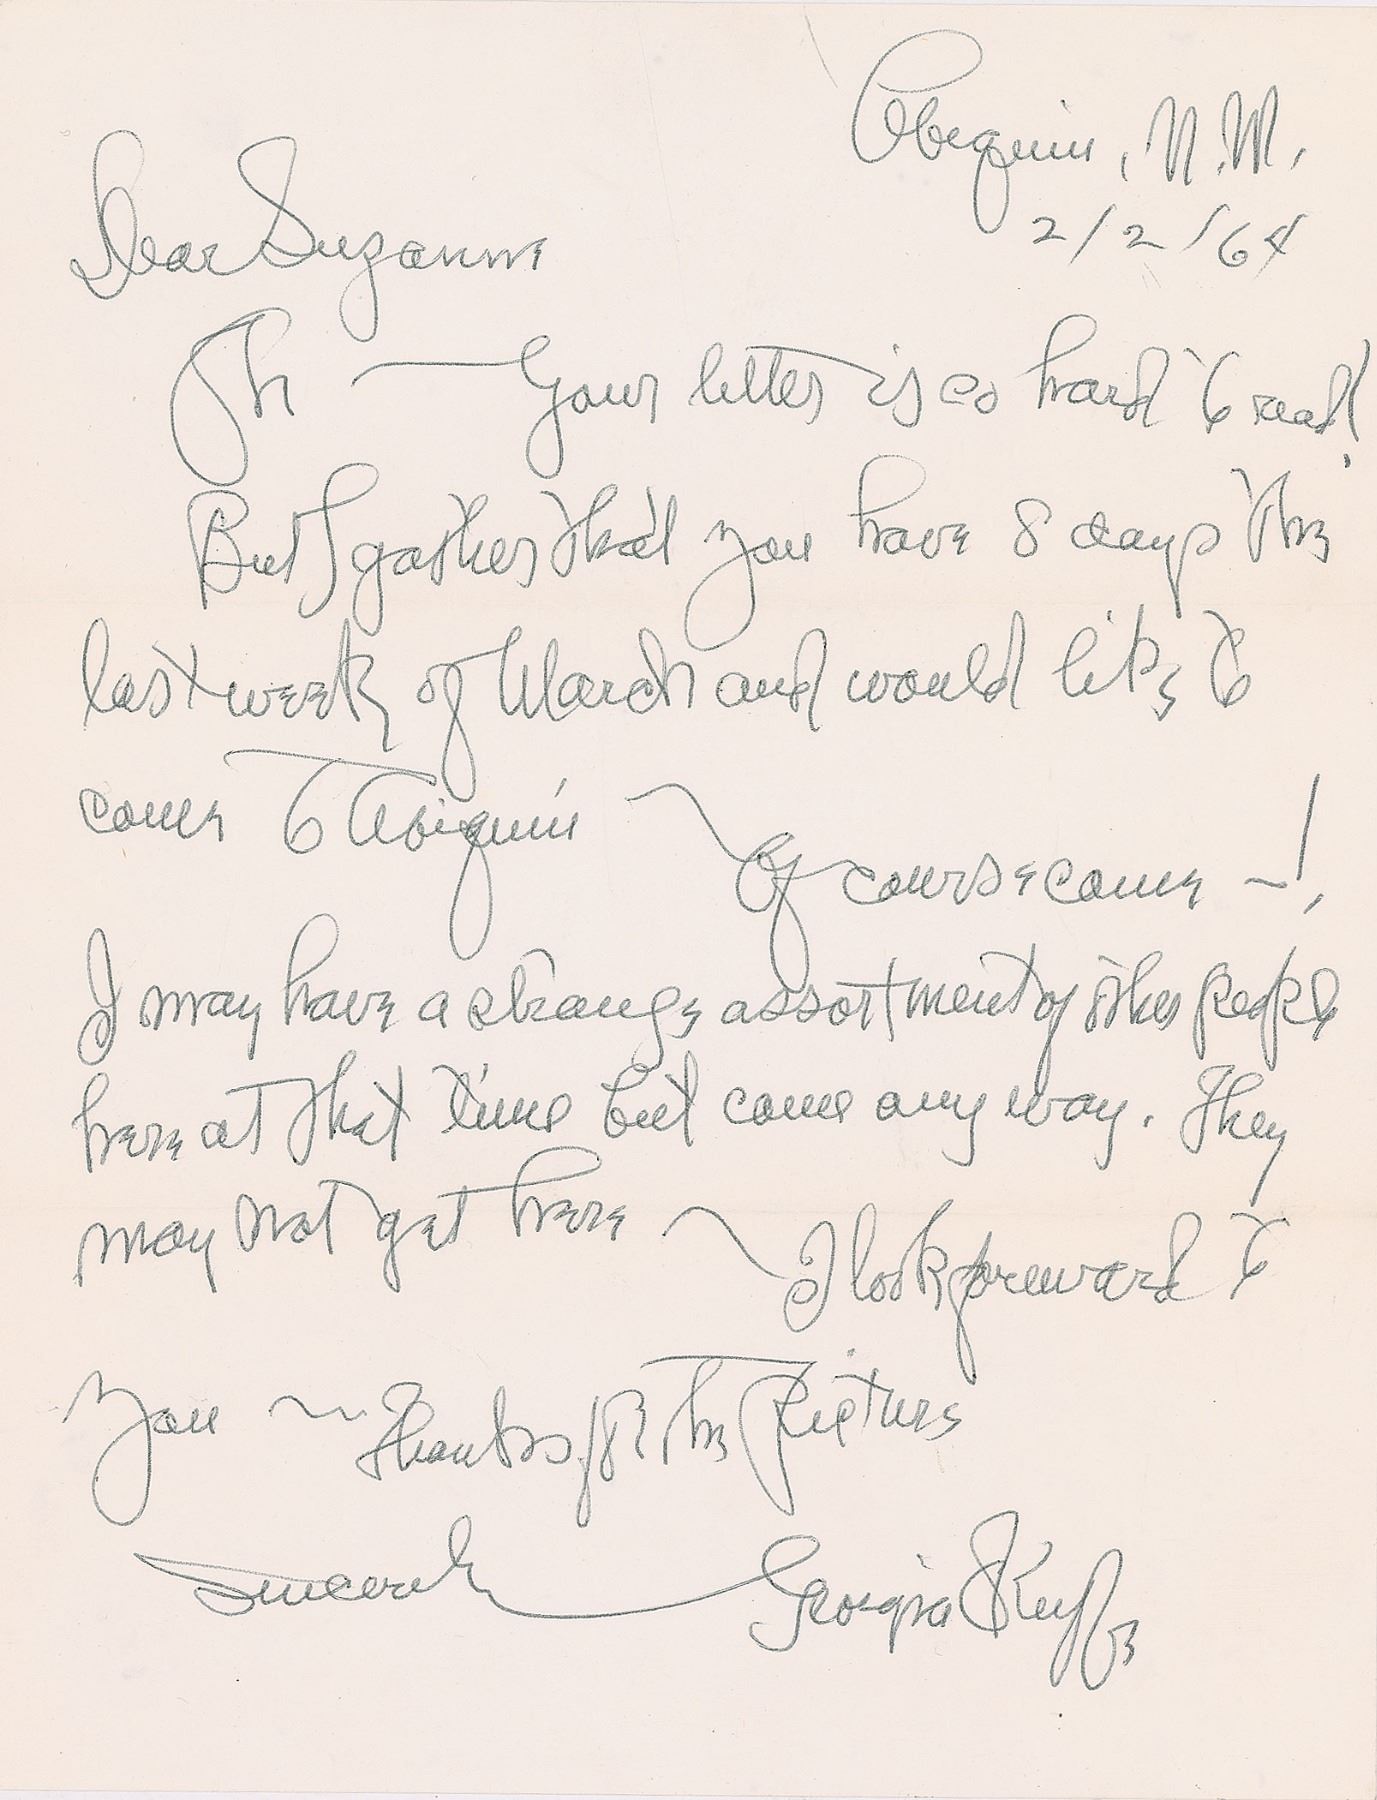 Abiquiu, N.M.
2/2/64
Dear Suzanne
Oh — Your letter is so hard to read!
But I gather that you have 8 days the
last week of March and would like to
come to Abiquiu ~
Of course come —!
I may have a strange assortment of other people
here at that time but come any way. They
may not get here ~
I look foreward to
you ~ Thanks for the picture
Sincerely Georgia O'Keeffe